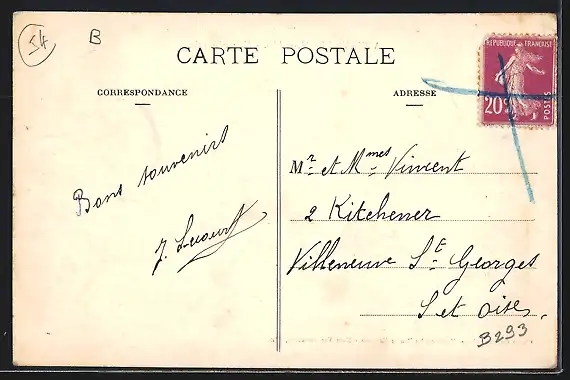 54
B
CARTE POSTALE
CORRESPONDANCE
ADRESSE
REPUBLIQUE FRANÇAISE
20c
POSTES
Bons souvenirs
Mr et Mmes Vincent
2 Kitchener
Villeneuve St Georges
S et Oise,
B293